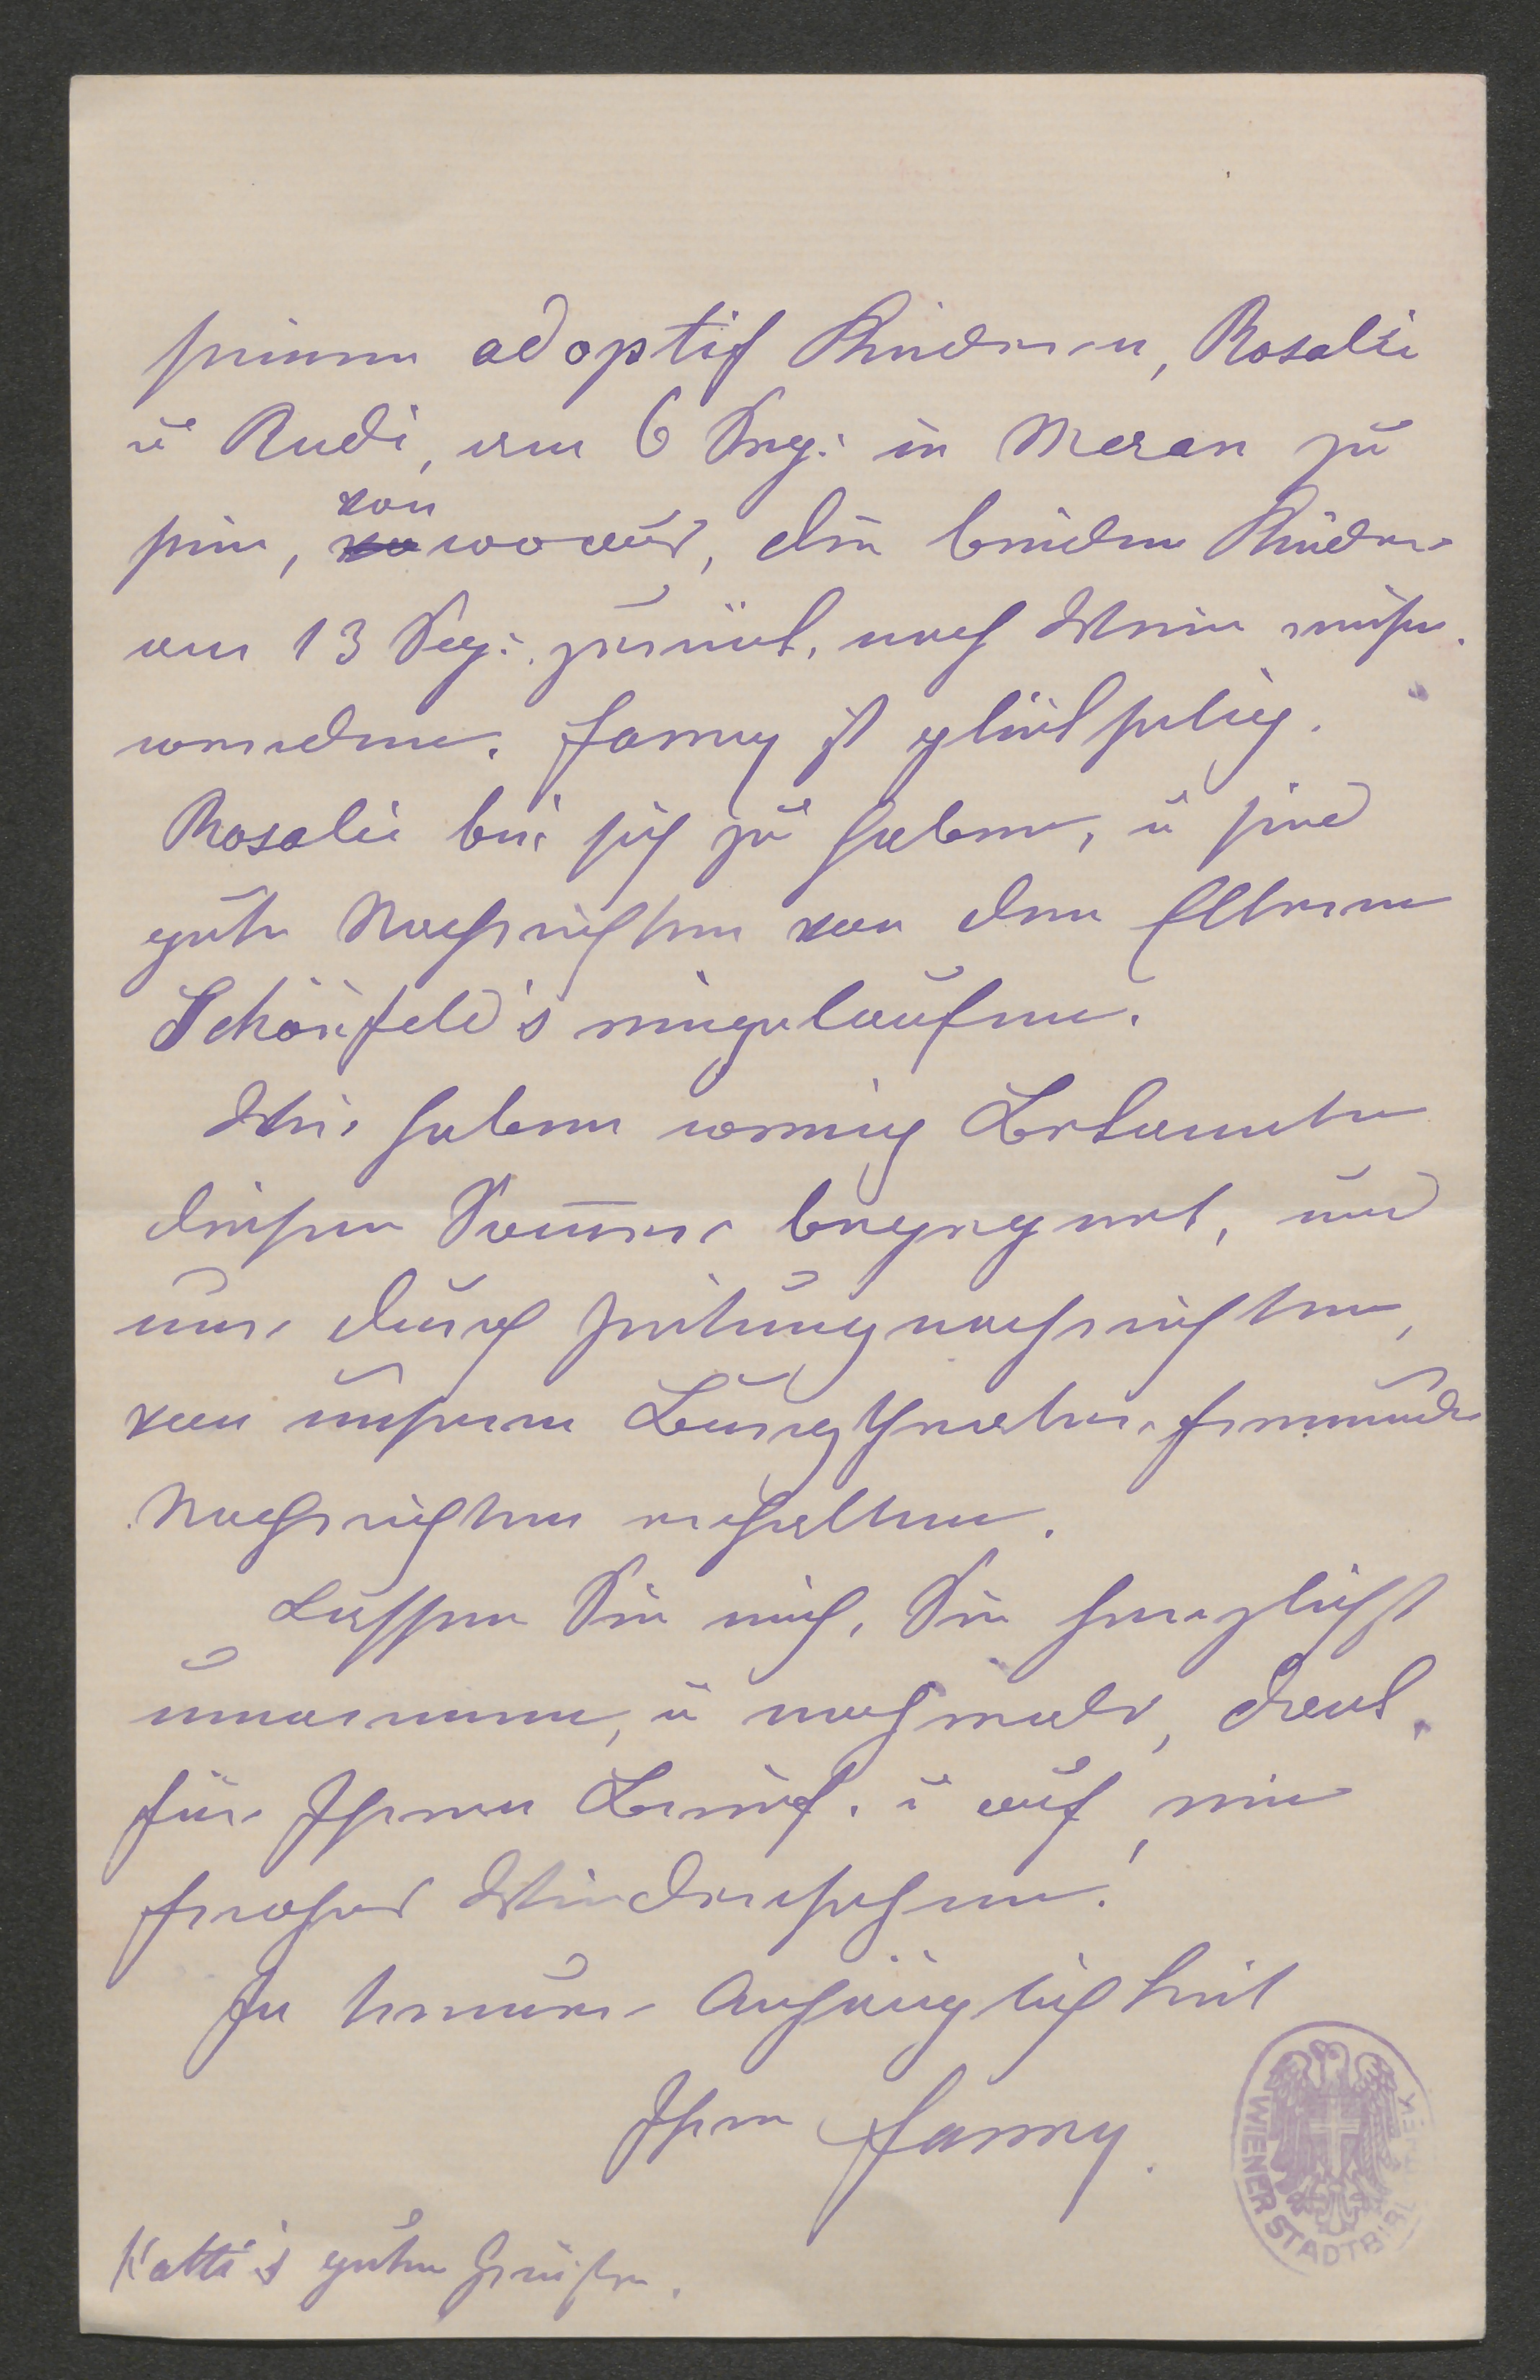 seinen adoptif Kindern, Rosalie
u Rudi, am 6 Sep: in Meran zu
sein, von wo aus, die beiden Kinder
am 13 Sep: zurük, nach Wien reisen
werden. Fanny ist glükselig.
Rosalie bei sich zu haben, u sind
gute Nachrichten von den Eltern
Schönfeld's eingelaufen.
Wir haben wenig Bekannte
diesen Som̅er begegnet, und
nur durch Zeitungnachrichten,
von unseren Burgtheater freunde
Nachrichten erhalten.
Lassen Sie mich, Sie herzlichst
umarmen, u nochmals, Dank
für Ihren Brief. u auf, ein
frohes Wiedersehen!
In treuer Anhänglichkeit
Ihre Fanny.
Katti's guten Grüßen.
WIENER STADTBIBLIOTHEK